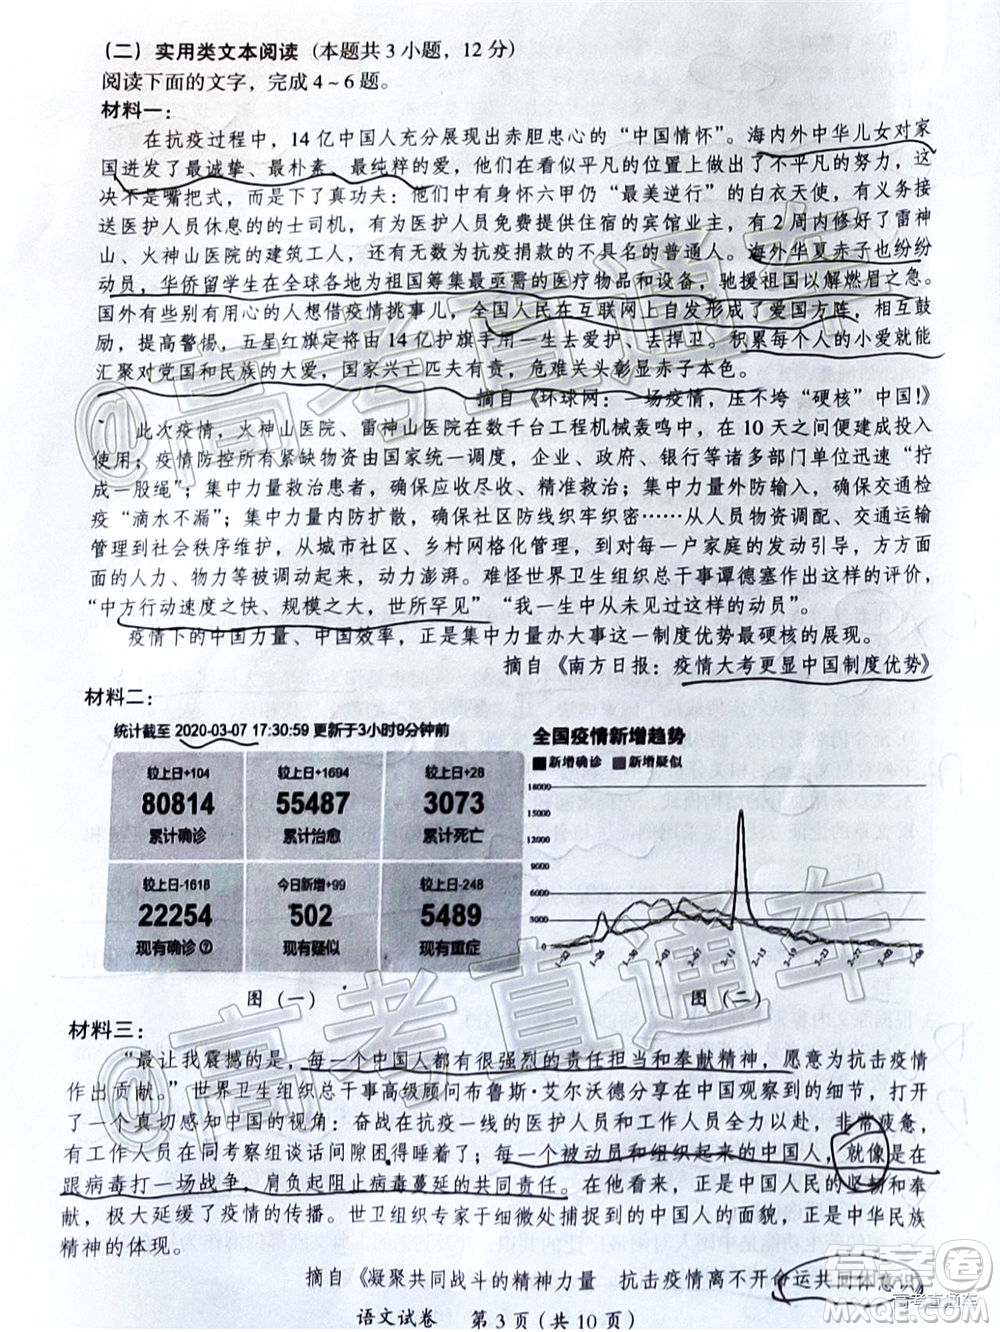 （二）实用类文本阅读（本题共 3 小题，12 分）
阅读下面的文字，完成 4～6 题。
材料一：
在抗疫过程中，14 亿中国人充分展现出赤胆忠心的“中国情怀”。海内外中华儿女对家
国迸发了最诚挚、最朴素、最纯粹的爱，他们在看似平凡的岗位上做出了不平凡的努力，这
决不是嘴把式，而是下了真功夫：他们中有身怀六甲仍“最美逆行”的白衣天使，有义务接
送医护人员休息的的士司机，有为医护人员免费提供住宿的宾馆业主，有 2 周内修好了雷神
山、火神山医院的建筑工人，还有无数为抗疫捐款的不具名的普通人。海外华夏赤子也纷纷
动员，华侨留学生在全球各地为祖国筹集最亟需的医疗物品和设备，驰援祖国以解燃眉之急。
国外有些别有用心的人想借疫情挑事儿，全国人民在互联网上自发形成了爱国方阵，相互鼓
励，提高警惕，五星红旗定将由 14 亿护旗手用一生去爱护、去捍卫。积累每个人的小爱就能
汇聚对党国和民族的大爱，国家兴亡匹夫有责，危难关头彰显赤子本色。
摘自《环球网：一场疫情，压不垮“硬核”中国！》
此次疫情，火神山医院、雷神山医院在数千台工程机械轰鸣中，在 10 天之间便建成投入
使用；疫情防控所有紧缺物资由国家统一调度，企业、政府、银行等诸多部门单位迅速“拧
成一股绳”；集中力量救治患者，确保应收尽收、精准救治；集中力量外防输入，确保交通检
疫“滴水不漏”；集中力量内防扩散，确保社区防线织牢织密……从人员物资调配、交通运输
管理到社会秩序维护，从城市社区、乡村网格化管理，到对每一户家庭的发动引导，方方面面
面的人力、物力等被调动起来，动力澎湃。难怪世界卫生组织总干事谭德塞作出这样的评价，
“中方行动速度之快、规模之大，世所罕见”“我一生中从未见过这样的动员”。
疫情下的中国力量、中国效率，正是集中力量办大事这一制度优势最硬核的展现。
摘自《南方日报：疫情大考更显中国制度优势》
材料二：
统计截至 2020-03-07 17:30:59 更新于3小时9分钟前
较上日+104
80814
累计确诊
较上日+1694
55487
累计治愈
较上日+28
3073
累计死亡
较上日-1618
22254
现有确诊?
今日新增+99
502
现有疑似
较上日-248
5489
现有重症
图（一）
全国疫情新增趋势
新增确诊 新增疑似
18000
15000
12000
9000
6000
3000
0
图（二）
材料三：
“最让我震撼的是，每一个中国人都有很强烈的责任担当和奉献精神，愿意为抗击疫情
作出贡献。”世界卫生组织总干事高级顾问布鲁斯·艾尔沃德分享在中国观察到的细节，打开
了一个真切感知中国的视角：奋战在抗疫一线的医护人员和工作人员全力以赴，非常疲惫，
有工作人员在同考察组谈话间隙困得睡着了；每一个被动员和组织起来的中国人，就像是在
跟病毒打一场战争，肩负起阻止病毒蔓延的共同责任。在他看来，正是中国人民的坚韧和奉
献，极大延缓了疫情的传播。世卫组织专家于细微处捕捉到的中国人的面貌，正是中华民族
精神的体现。
摘自《凝聚共同战斗的精神力量 抗击疫情离不开命运共同体意识》
语文试卷 第 3 页（共 10 页）